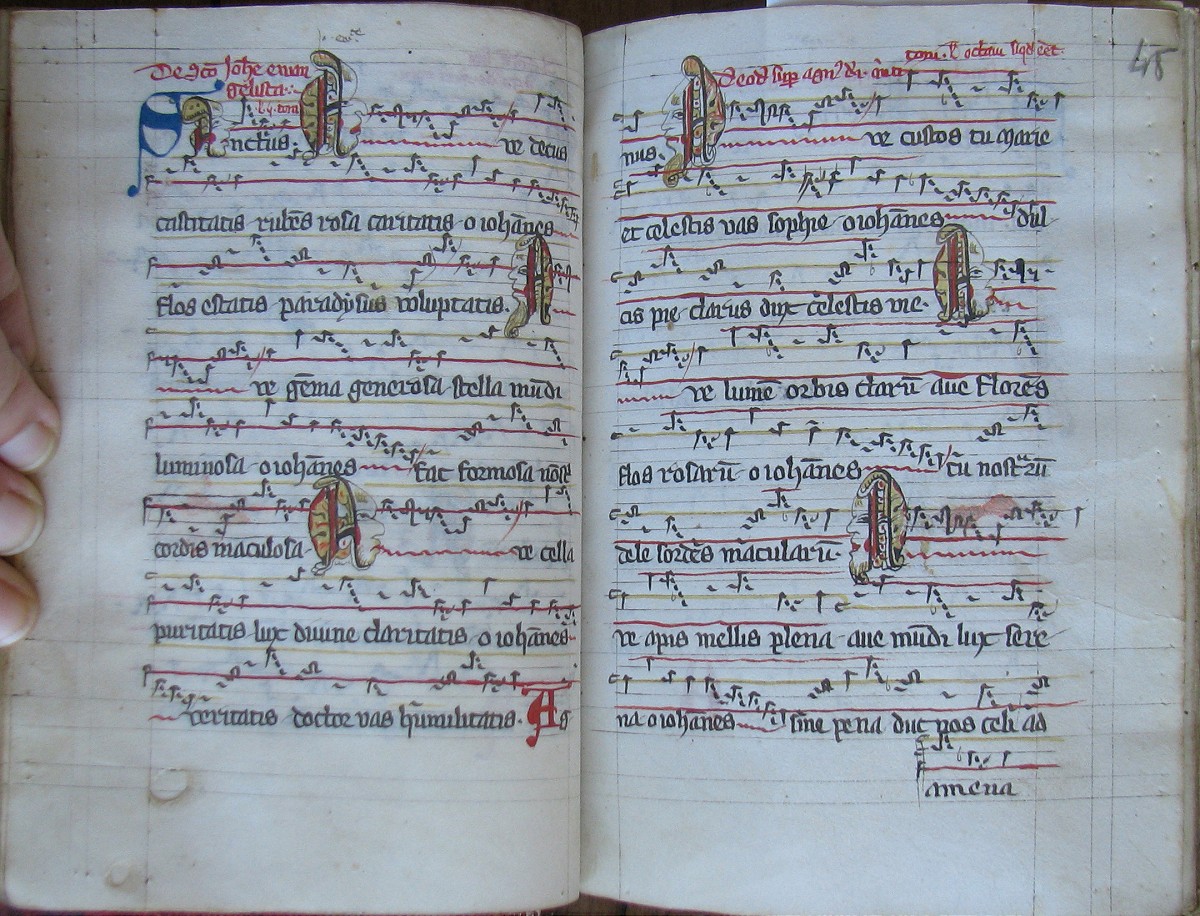 De sco Johe ewan
gelista
Sanctus. A ve decus
castitatis rubēs rosa caritatis o iohānes
flos estatis paradysus voluptatis. A
ve gēma generosa stella mūdi
luminosa o iohānes fac formosa nostri
cordis maculosa A ve cella
puritatis lux divine claritatis o iohānes
veritatis doctor vas hūmilitatis. Ag
45
nus. A ve custos tu marie
et celestis vas sophie o iohānes dul
cis pie clarus dux celestis vie. A
ve lumē orbis clarū ave flores
flos rosarū o iohānes tu nostrarū
dele sordes macularū. A
ve apis mellis plena ave mūdi lux sere
na o iohanes sine pena duc nos celi ad
amena